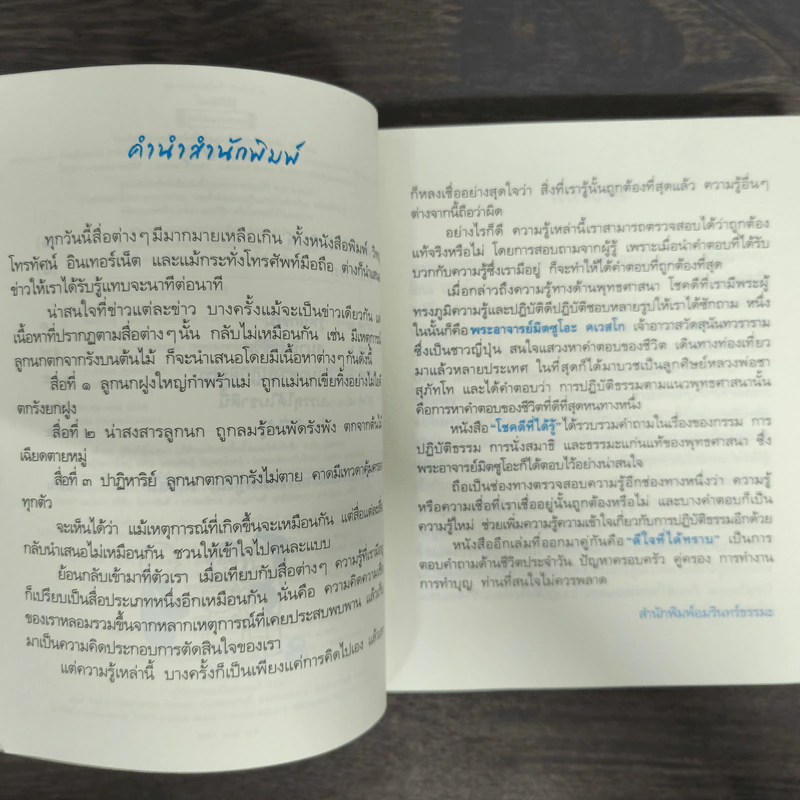 คำนำสำนักพิมพ์
ทุกวันนี้สื่อต่างๆ มีมากมายเหลือเกิน ทั้งหนังสือพิมพ์ วิทยุ
โทรทัศน์ อินเทอร์เน็ต และแม้กระทั่งโทรศัพท์มือถือ ต่างก็นำเสนอ
ข่าวให้เราได้รับรู้แทบจะนาทีต่อนาที
น่าสนใจที่ข่าวแต่ละข่าว บางครั้งแม้จะเป็นข่าวเดียวกัน แต่
เนื้อหาที่ปรากฏตามสื่อต่างๆ นั้น กลับไม่เหมือนกัน เช่น มีเหตุการณ์
ลูกนกตกจากรังบนต้นไม้ ก็จะนำเสนอโดยมีเนื้อหาต่างๆ กันดังนี้
สื่อที่ ๑ ลูกนกฝูงใหญ่กำพร้าแม่ ถูกแม่นกเขี่ยทิ้งอย่างไม่ไยดี
ตกรังยกฝูง
สื่อที่ ๒ น่าสงสารลูกนก ถูกลมร้อนพัดรังพัง ตกจากต้นไม้
เฉียดตายหมู่
สื่อที่ ๓ ปาฏิหาริย์ ลูกนกตกจากรังไม่ตาย คาดมีเทวดาคุ้มครอง
ทุกตัว
จะเห็นได้ว่า แม้เหตุการณ์ที่เกิดขึ้นจะเหมือนกัน แต่สื่อแต่ละสื่อ
กลับนำเสนอไม่เหมือนกัน ชวนให้เข้าใจไปคนละแบบ
ย้อนกลับเข้ามาที่ตัวเรา เมื่อเทียบกับสื่อต่างๆ ความรู้ที่เรามีอยู่
ก็เปรียบเป็นสื่อประเภทหนึ่งอีกเหมือนกัน นั่นคือ ความคิดความเชื่อ
ของเราหลอมรวมขึ้นจากหลากเหตุการณ์ที่เคยประสบพบพาน แล้ว
มาเป็นความคิดประกอบการตัดสินใจของเรา
แต่ความรู้เหล่านี้ บางครั้งก็เป็นเพียงแค่การคิดไปเอง แล้ว
ก็หลงเชื่ออย่างสุดใจว่า สิ่งที่เรารู้นั้นถูกต้องที่สุดแล้ว ความรู้อื่นๆ
ต่างจากนี้ถือว่าผิด
อย่างไรก็ดี ความรู้เหล่านี้เราสามารถตรวจสอบได้ว่าถูกต้อง
แท้จริงหรือไม่ โดยการสอบถามจากผู้รู้ เพราะเมื่อนำคำตอบที่ได้รับ
บวกกับความรู้ซึ่งเรามีอยู่ ก็จะทำให้ได้คำตอบที่ถูกต้องที่สุด
เมื่อกล่าวถึงความรู้ทางด้านพุทธศาสนา โชคดีที่เรามีพระผู้
ทรงภูมิความรู้และปฏิบัติดีปฏิบัติชอบหลายรูปให้เราได้ซักถาม หนึ่ง
ในนั้นก็คือ พระอาจารย์มิตซูโอะ คเวสโก เจ้าอาวาสวัดสุนันทวราราม
ซึ่งเป็นชาวญี่ปุ่น สนใจแสวงหาคำตอบของชีวิต เดินทางท่องเที่ยว
มาแล้วหลายประเทศ ในที่สุดก็ได้มาบวชเป็นลูกศิษย์หลวงพ่อชา
สุภัทโท และได้คำตอบว่า การปฏิบัติธรรมตามแนวพุทธศาสนานั้น
คือการหาคำตอบของชีวิตที่ดีที่สุดหนทางหนึ่ง
หนังสือ “โชคดีที่ได้รู้” ได้รวบรวมคำถามในเรื่องของกรรม การ
ปฏิบัติธรรม การนั่งสมาธิ และธรรมะแก่นแท้ของพุทธศาสนา ซึ่ง
พระอาจารย์มิตซูโอะก็ได้ตอบไว้อย่างน่าสนใจ
ถือเป็นช่องทางตรวจสอบความรู้อีกช่องทางหนึ่งว่า ความรู้
หรือความเชื่อที่เราเชื่ออยู่นั้นถูกต้องหรือไม่ และบางคำตอบก็เป็น
ความรู้ใหม่ ช่วยเพิ่มความรู้ความเข้าใจเกี่ยวกับการปฏิบัติธรรมอีกด้วย
หนังสืออีกเล่มที่ออกมาคู่กันคือ “ดีใจที่ได้ทราบ” เป็นการ
ตอบคำถามด้านชีวิตประจำวัน ปัญหาครอบครัว คู่ครอง การทำงาน
การทำบุญ ท่านที่สนใจไม่ควรพลาด
สำนักพิมพ์อมรินทร์ธรรมะ